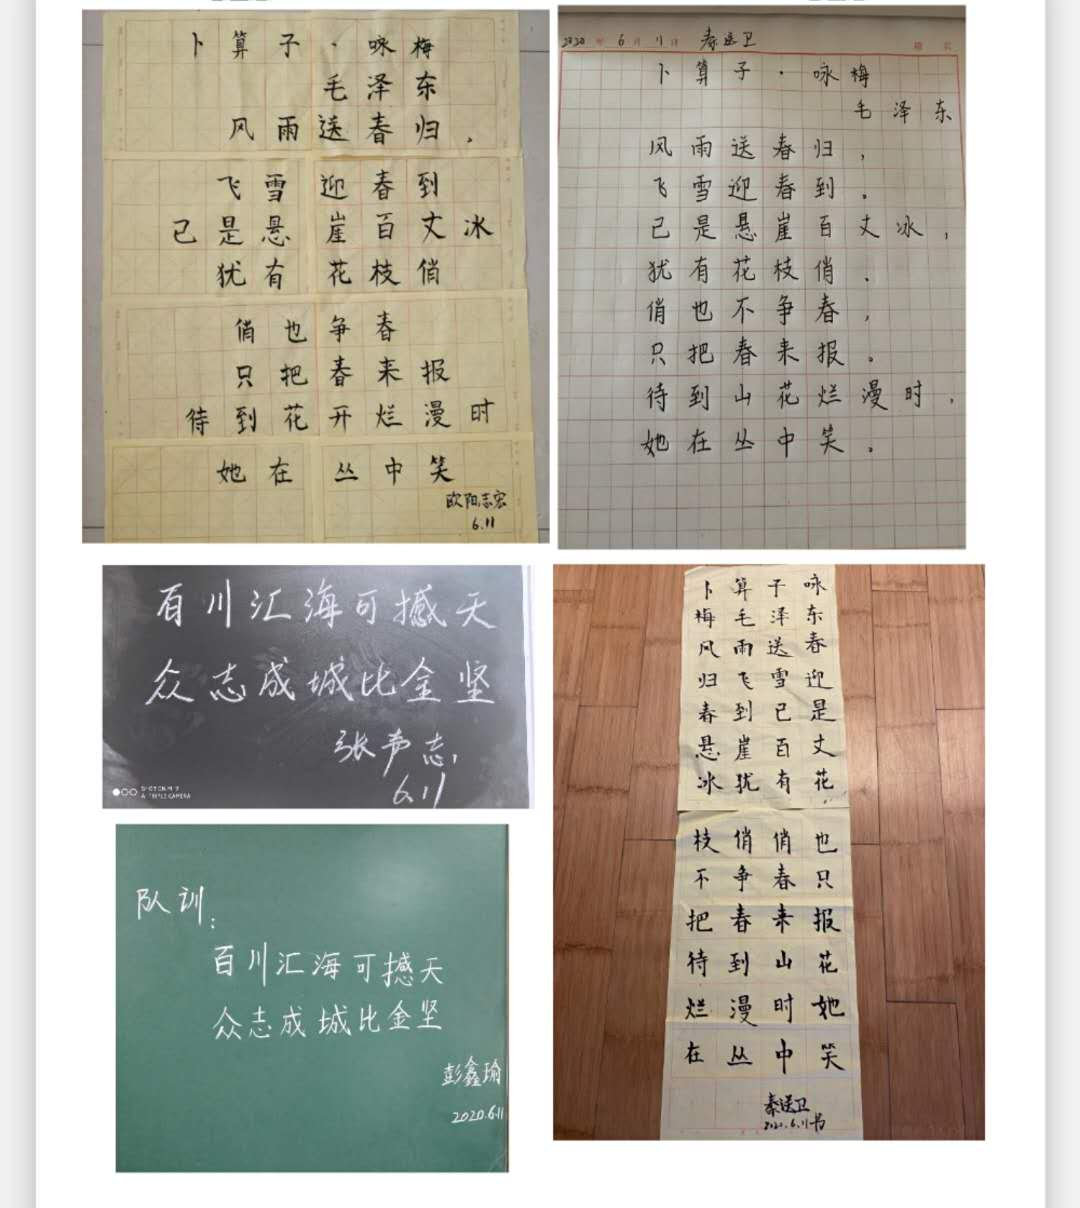 卜算子·咏梅
毛泽东
风雨送春归,
飞雪迎春到
已是悬崖百丈冰
犹有花枝俏
俏也争春
只把春来报
待到花开烂漫时
她在丛中笑
欧阳志宏
6.11
2020年6月11日 秦送卫
卜算子·咏梅
毛泽东
风雨送春归,
飞雪迎春到。
已是悬崖百丈冰,
犹有花枝俏.
俏也不争春,
只把春来报。
待到山花烂漫时,
她在丛中笑。
百川汇海可撼天
众志成城比金坚
6.11
AI TRIPLE CAMERA
队训:
百川汇海可撼天
众志成城比金坚
彭鑫瑜
2020.6.11
卜算子咏
梅毛泽东
风雨送春
归飞雪迎
春到已是
悬崖百丈
冰犹有花
枝俏俏也
不争春只
把春来报
待到山花
烂漫时她
在丛中笑
秦送卫
2020.6.11书